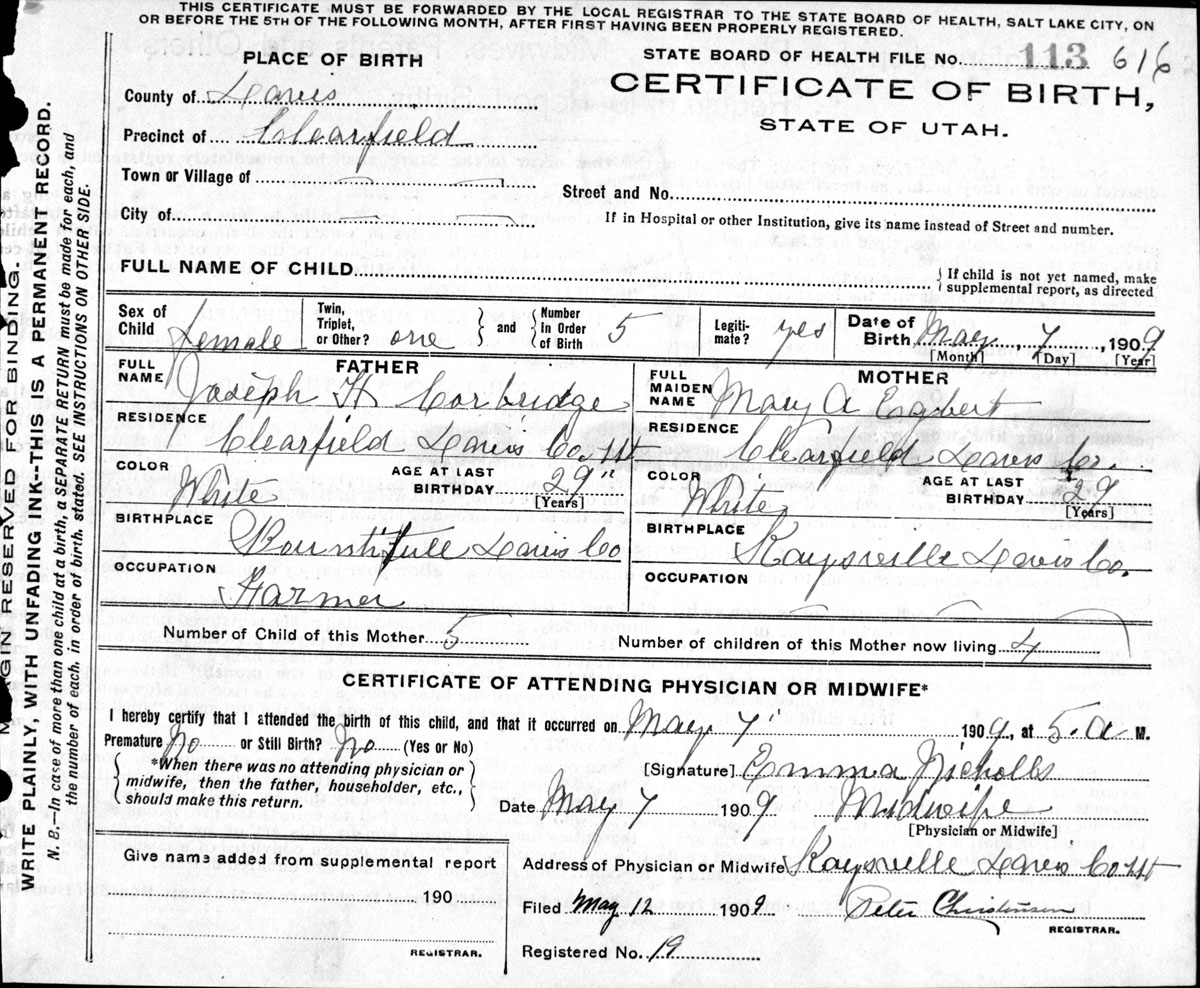 THIS CERTIFICATE MUST BE FORWARDED BY THE LOCAL REGISTRAR TO THE STATE BOARD OF HEALTH, SALT LAKE CITY, ON
OR BEFORE THE 5TH OF THE FOLLOWING MONTH, AFTER FIRST HAVING BEEN PROPERLY REGISTERED.
STATE BOARD OF HEALTH FILE No. 113 616
PLACE OF BIRTH
CERTIFICATE OF BIRTH,
STATE OF UTAH.
County of Davis
Precinct of Clearfield
Town or Village of
Street and No.
City of
If in Hospital or other Institution, give its name instead of Street and number.
FULL NAME OF CHILD
If child is not yet named, make
supplemental report, as directed
Sex of Child Female
Twin, Triplet, or Other? one
and Number in Order of Birth 5
Legitimate? yes
Date of Birth May 7, 1909
[Month] [Day] [Year]
FATHER
FULL NAME Joseph H Corbridge
RESIDENCE
Clearfield Davis Co. Ut
COLOR White
AGE AT LAST BIRTHDAY 29
[Years]
BIRTHPLACE
Bountifull Davis Co
OCCUPATION
Farmer
MOTHER
FULL MAIDEN NAME Mary A Egbert
RESIDENCE
Clearfield Davis Co.
COLOR White
AGE AT LAST BIRTHDAY 29
[Years]
BIRTHPLACE
Kaysville Davis Co.
OCCUPATION
Number of Child of this Mother 5
Number of children of this Mother now living 4
CERTIFICATE OF ATTENDING PHYSICIAN OR MIDWIFE*
I hereby certify that I attended the birth of this child, and that it occurred on May 7" 1909, at 5. a M.
Premature No or Still Birth? No (Yes or No)
*When there was no attending physician or
midwife, then the father, householder, etc.,
should make this return.
[Signature] Emma Nicholls
Date May 7 1909 Midwife
[Physician or Midwife]
Give name added from supplemental report
190
REGISTRAR.
Address of Physician or Midwife Kaysville Davis Co Ut
Filed May 12 1909 Peter Christensen
REGISTRAR.
Registered No. 19
MARGIN RESERVED FOR BINDING.
WRITE PLAINLY, WITH UNFADING INK--THIS IS A PERMANENT RECORD.
N. B.--In case of more than one child at a birth, a SEPARATE RETURN must be made for each, and
the number of each, in order of birth, stated. SEE INSTRUCTIONS ON OTHER SIDE.